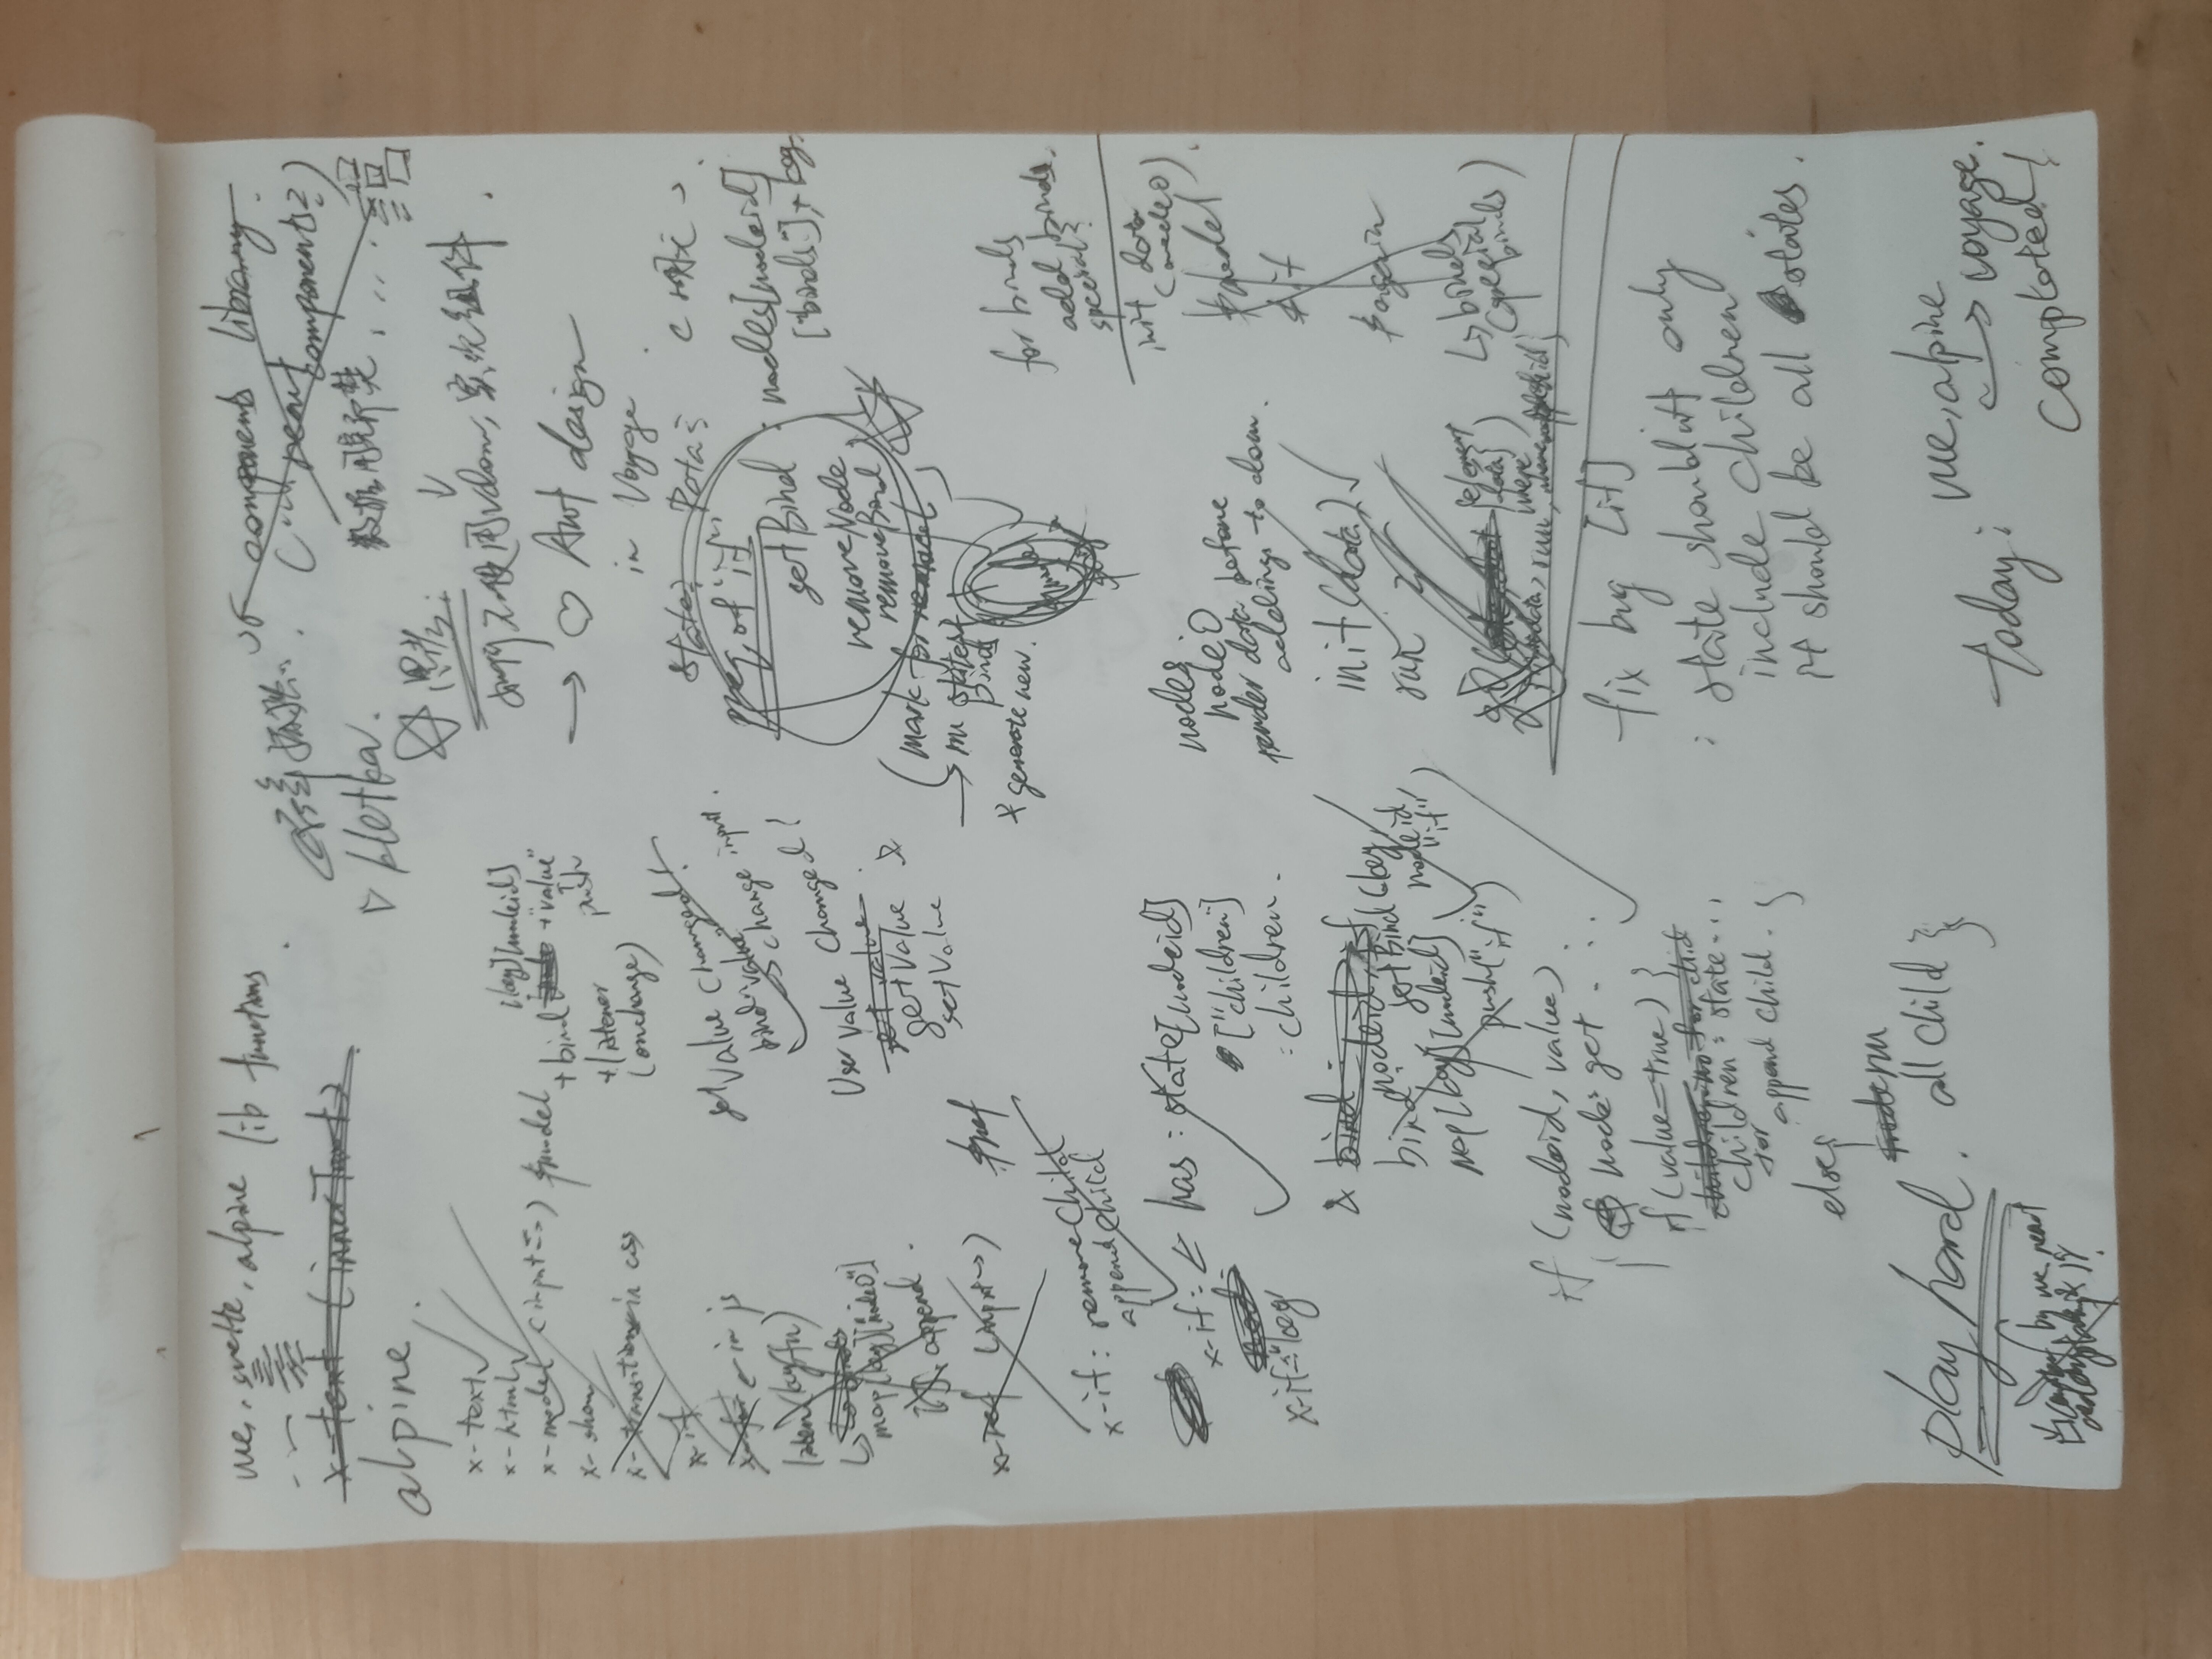 me, svelte, alpine lib functions.
x-text (innerText)
alpine.
x-text
x-html
x-model (input => ) $model
x-show
x-transition in css
x-if
x-for in js
listen(key, fn)
map[key]["node0"]
append.
x-ref (input→) $ref
[key][nodeid]
+bind + "value"
push
+listener
(onchange)
set value changed!
bind "value"
→ change input.
User value changed!
set value.
getValue
setValue
x-if: removeChild
appendChild
x-if: ← has: state[nodeid]
["children"]
: children.
x-if="key"
& bind :
nodeid, if
bind: getBind(key,
nodeid,
"if")
map[key][nodeid]
push("if")
if (nodeid, value)
node: get . . .
if (value=true) {
children: state...
for
append child. }
else {
rm
all child }
play hard.
by me react
components library.
(... react
components?)
▷ kletka.
数据用完即焚, ...
思考:
如何不使用vdom, 实现组件.
→ ♡ Awt design
in Voyage.
state? Data?
preq. of "if"
getBind : nodes[nodeid]
["binds"], + key.
removeNode
removeBind
(mark for remove)
→ rm state &
binds
* generate new.
for binds
add binds.
special?
init data
(node0)
$model
$if
$again
↳ binds
(special
binds)
nodes.
node0
render data before
addings to dom.
init(data)
run
[element
data]
where
fix bug [if]
: state shouldn't only
include children
it should be all states.
today: me, alpine
→ voyage.
Completed!